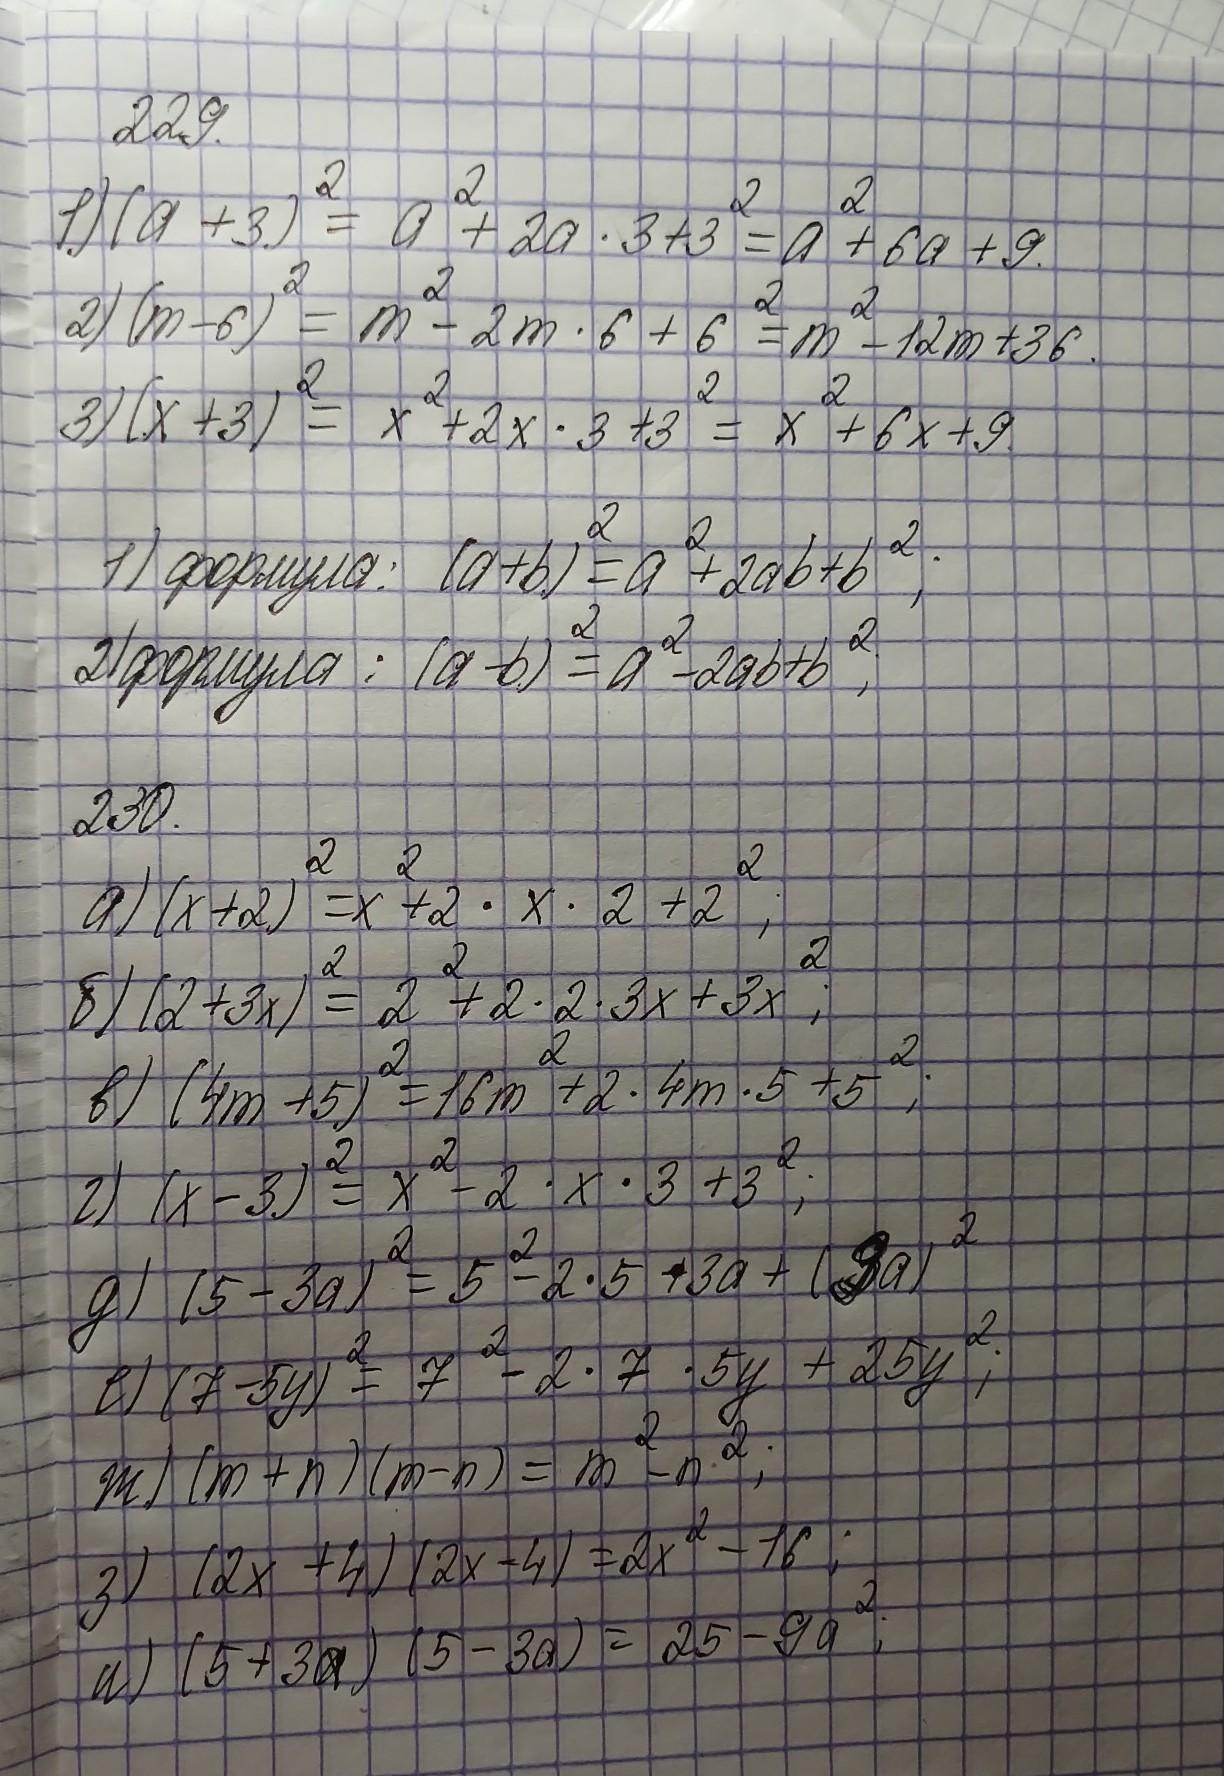 229.
1) (a+3)² = a²+2a·3+3² = a²+6a+9.
2) (m-6)² = m²-2m·6+6² = m²-12m+36.
3) (x+3)² = x²+2x·3+3² = x²+6x+9.
1) формула: (a+b)² = a²+2ab+b²;
2) формула: (a-b)² = a²-2ab+b²;
230.
а) (x+2)² = x²+2·x·2+2²;
б) (2+3x)² = 2²+2·2·3x+3x²;
в) (4m+5)² = 16m²+2·4m·5+5²;
г) (x-3)² = x²-2·x·3+3²;
д) (5-3a)² = 5²-2·5·3a+(3a)²
е) (7-5y)² = 7²-2·7·5y+25y²;
ж) (m+n)(m-n) = m²-n²;
з) (2x+4)(2x-4) = 2x²-16;
и) (5+3a)(5-3a) = 25-9a²;